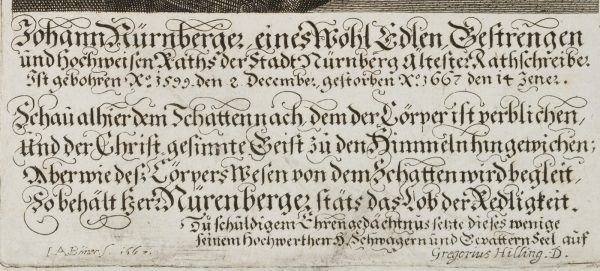 Johann Nürnberger, eines Wohl Edlen, Gestrengen
und Hochweisen Raths der Stadt Nürnberg Ältester Rathschreiber
Ist gebohren Aº. 1599. den 2 December, gestorben Aº. 1667 den 14 Jener.
Schau alhier dem Schatten nach dem der Cörper ist verblichen,
Und der Christ gesinnte Geist zu den Himmeln hingewichen;
Aber wie deß Cörpers Wesen von dem Schatten wird begleit,
So behält Herr Nürenberger stäts das Lob der Redligkeit.
Zu schuldigem Ehrengedächtnus setzte dieses wenige
seinem Hochwerthen H. Schwagern und Gevattern Seel. auf
I. A. Böner. f. 1667.
Gregorius Hilling. D.